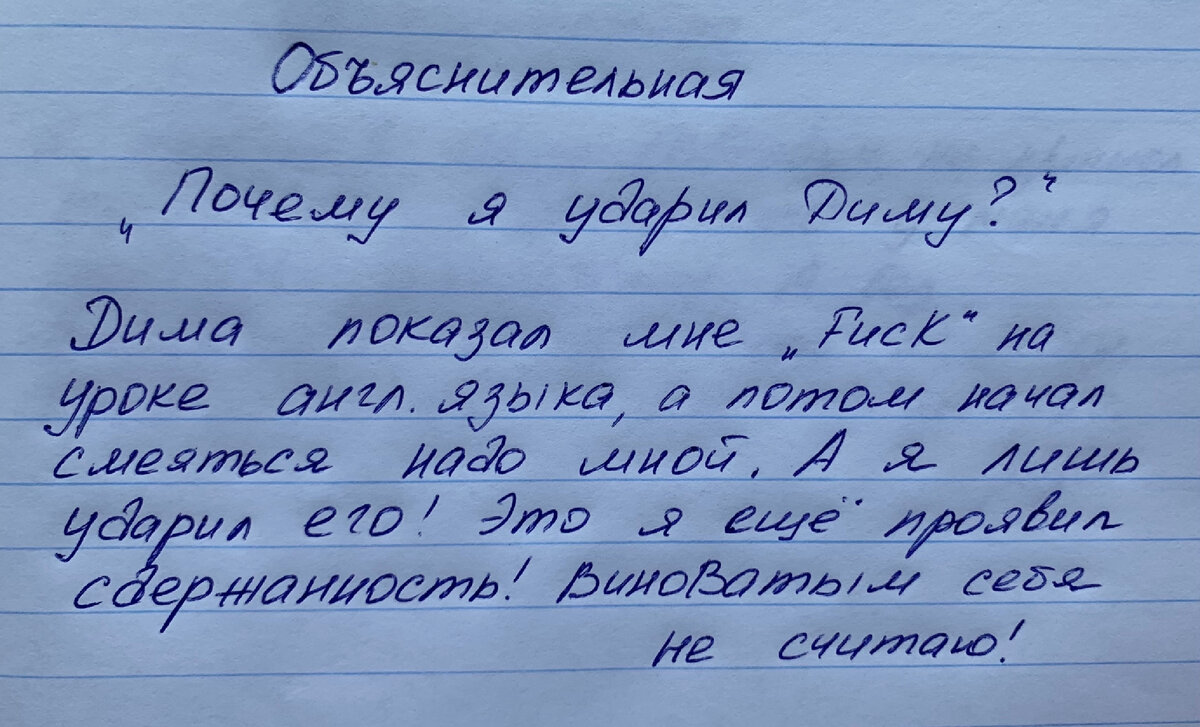 Объяснительная
„Почему я ударил Диму?“
Дима показал мне „Fuck“ на
уроке англ. языка, а потом начал
смеяться надо мной. А я лишь
ударил его! Это я ещё проявил
сдержанность! Виноватым себя
не считаю!